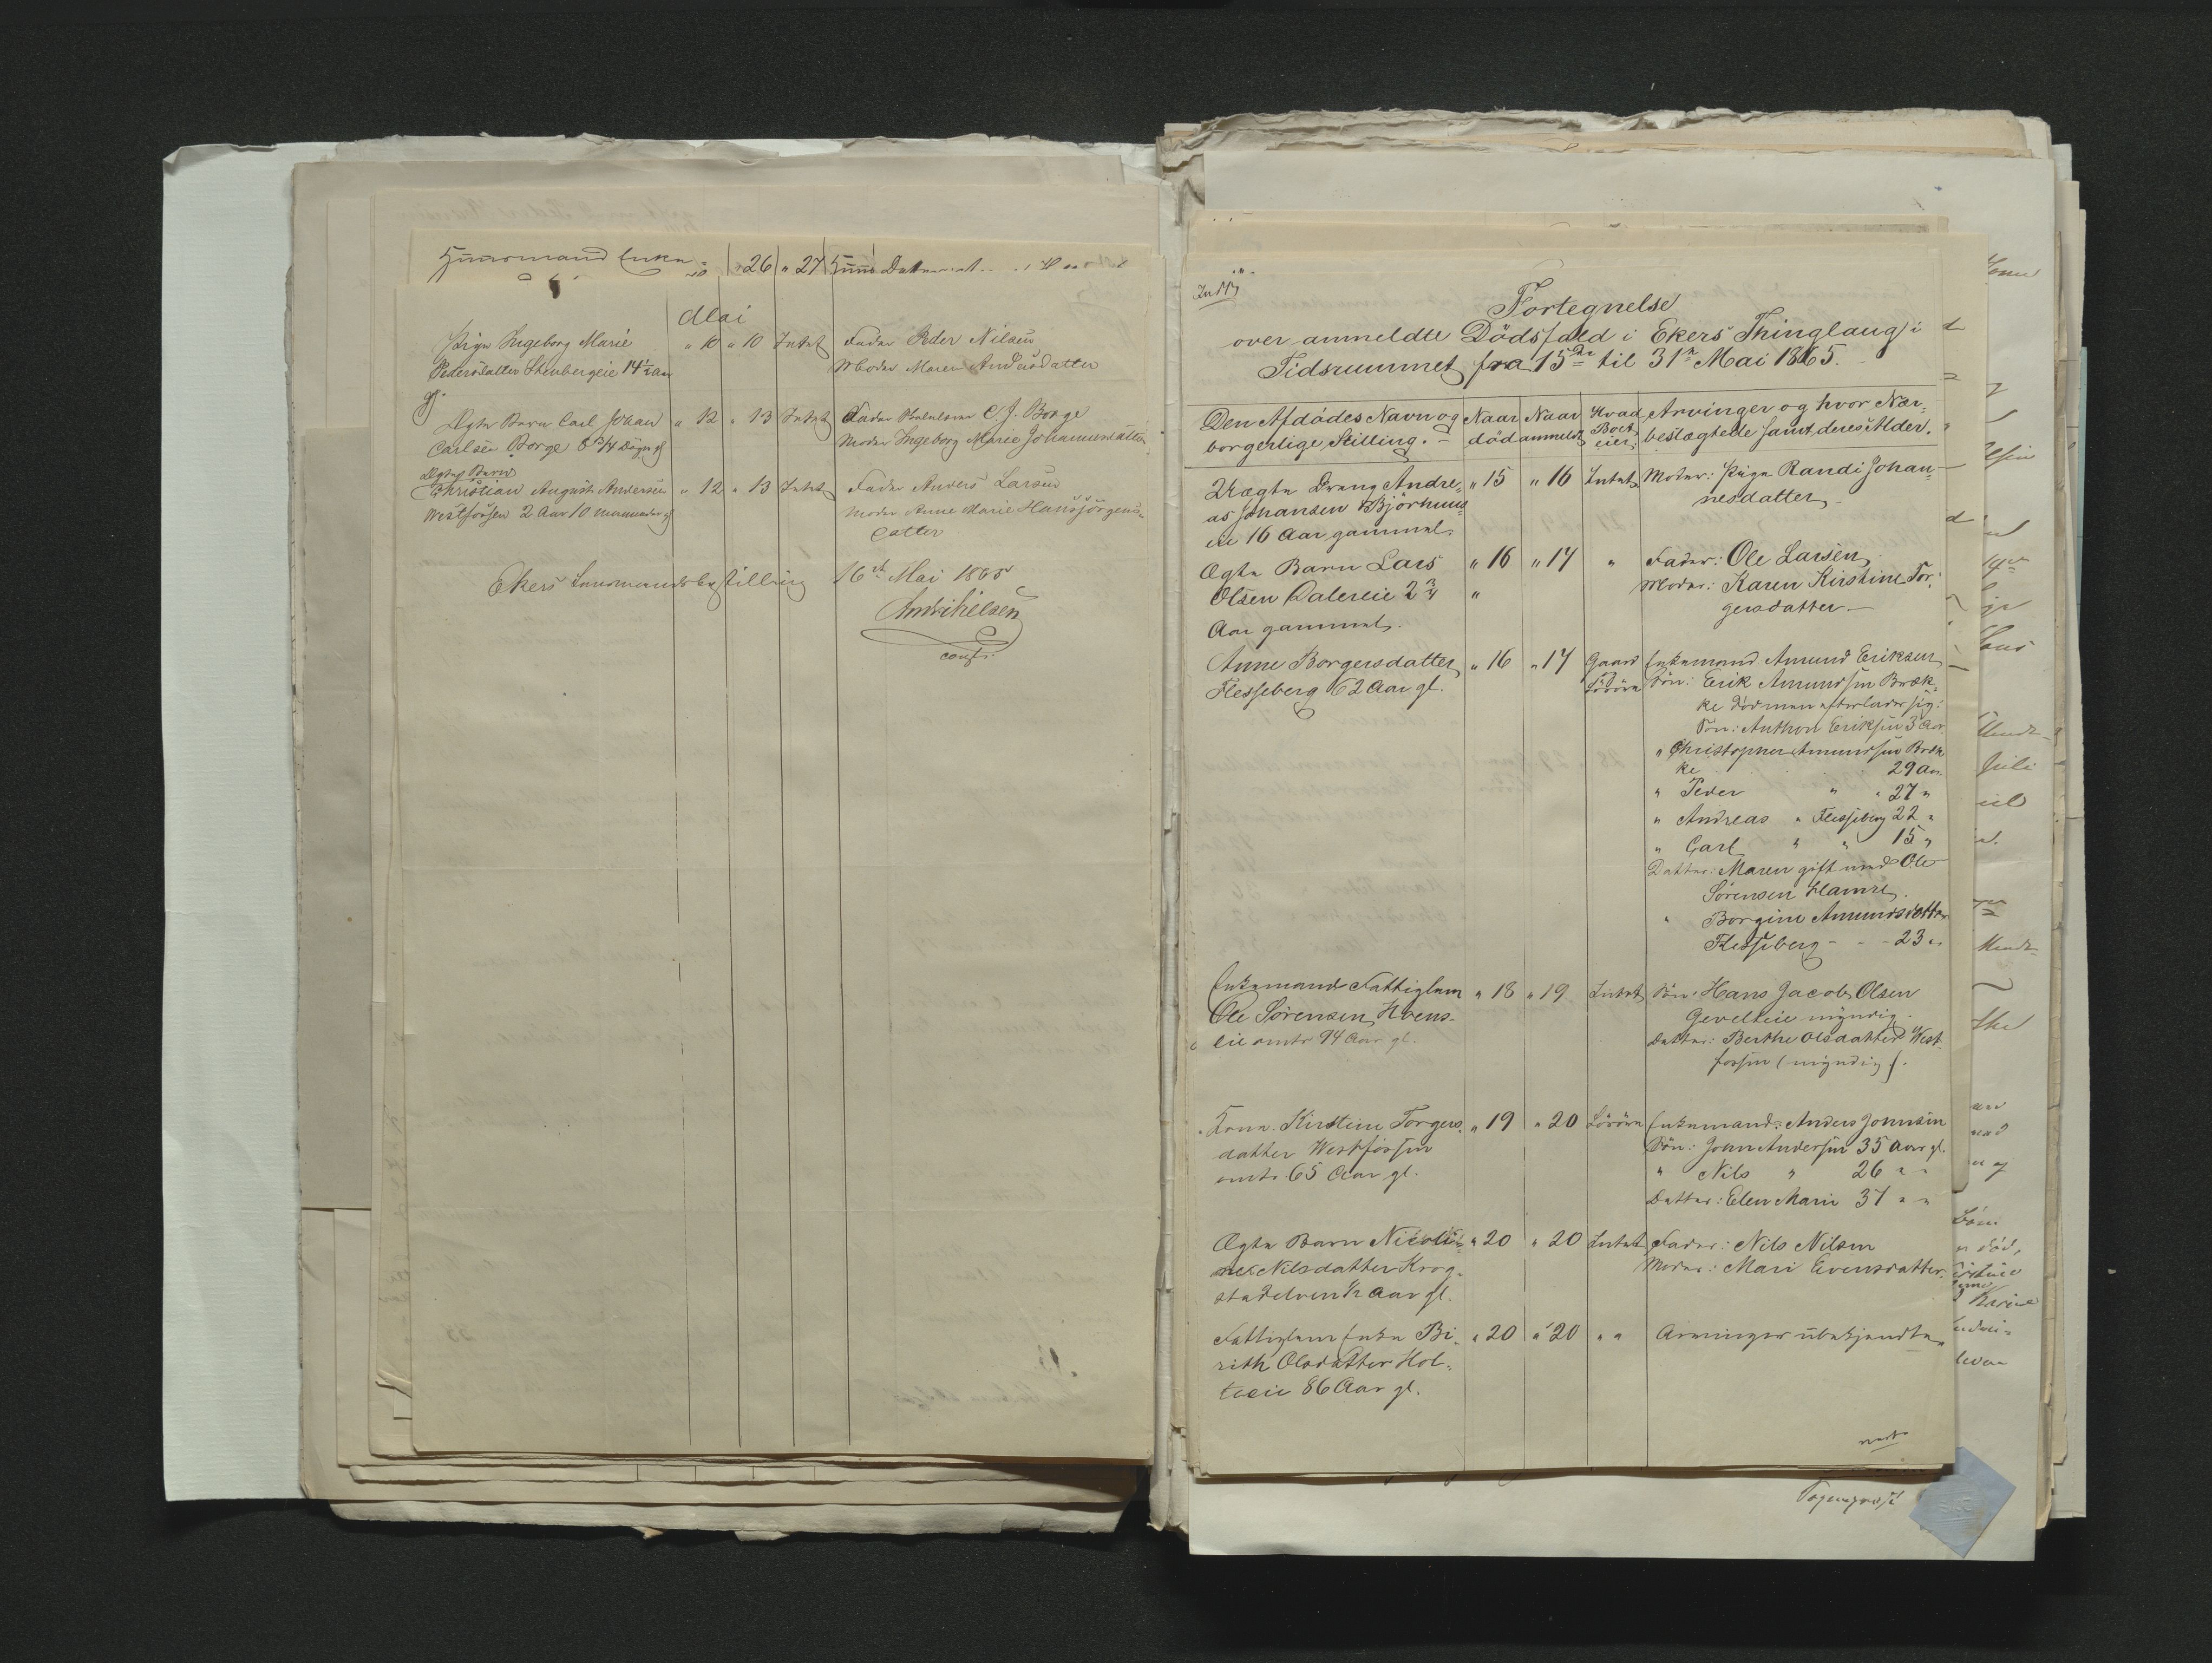 Huusmand Enke " 26 " 27
Mai
Pige Ingeborg Marie " 10 " 10 Intet Fader Peder Nilsen
Pedersdatter Stenbergeie 14½ Aar Moder Maren Andersdatter
gl
Ægte Barn Carl Johan " 12 " 13 Intet Fader C. J. Borge
Carlsen Borge Døgn gl Moder Ingeborg Marie Johannesdatter
Ægte Barn
Christian August Andersen " 12 " 13 Intet Fader Anders Larsen
Westfossen 2 Aar 10 Maaneder gl Moder Anne Marie Hansjørgens-
datter
Ekers Lensmandsbestilling 16de Mai 1865
const.
Fortegnelse
over anmeldte Dødsfald i Ekers Thinglaug i
Tidsrummet fra 15de til 31te Mai 1865.
Den Afdødes Navn og Naar Naar Hvad Arvinger og hvor Nær-
borgerlige Stilling. - død anmeldt Boet eier. beslægtede samt deres Alder.
Uægte Dreng Andre- " 15 " 16 Intet Moder: Pige Randi Johan-
as Johansen Bjørhuus- nesdatter
eie 16 Aar gammel.
Ægte Barn Lars " 16 " 17 " Fader: Ole Larsen
Olsen Dalereie 2¾ " Moder: Karen Kirstine Tor-
Aar gammel. gersdatter -
Anne Borgersdatter " 16 " 17 Gaard Enkemand Amund Eriksen
Flesseberg 62 Aar gl. og Løsøre Søn: Erik Amundsen Bræk-
ke død men efterlader sig:
Søn: Anthon Eriksen 3 Aar
" Christopher Amundsen Bræk
ke 29 Aar.
" Peder " " 27 "
" Andreas " Flesseberg 22 "
" Carl " " 15 "
Datter: Maren gift med Ole
Sørensen Hamre.
" Borgine Amundsdatter
Flesseberg - - - 23 "
Enkemand Fattiglem " 18 " 19 Intet Søn: Hans Jacob Olsen
Ole Sørensen Hvens- Gevelteie myndig.
eie omtr 94 Aar gl. Datter: Berthe Olsdatter West-
fossen (myndig).
Kone Kirstine Torgers- " 19 " 20 Løsøre Enkemand: Anders Jonnsen
datter Westfossen Søn: John Andersen 35 Aar gl.
omtr. 65 Aar gl. " Nils " 26 " "
Datter: Elen Marie 37 " "
Ægte Barn Nicoli- " 20 " 20 Intet Fader: Nils Nilsen
ne Nilsdatter Krog- Moder: Mari Evensdatter
stadelven ½ Aar gl.
Fattiglem Enke Bi- " 20 " 20 " " Arvinger ubekjendte.
rith Olsdatter Hol-
teeie 86 Aar gl.